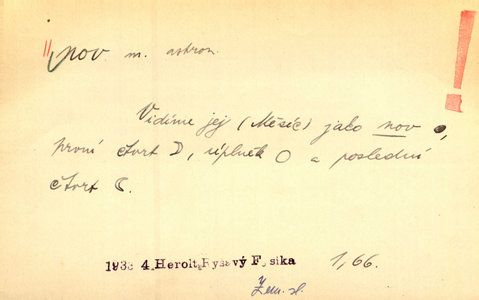 nov m. astron.
Vidíme jej (Měsíc) jako nov ●,
první čtvrt ☽, úplněk ○ a poslední
čtvrt ☾.
1938 4 Herolt, Ryšavý Fysika 1,66.